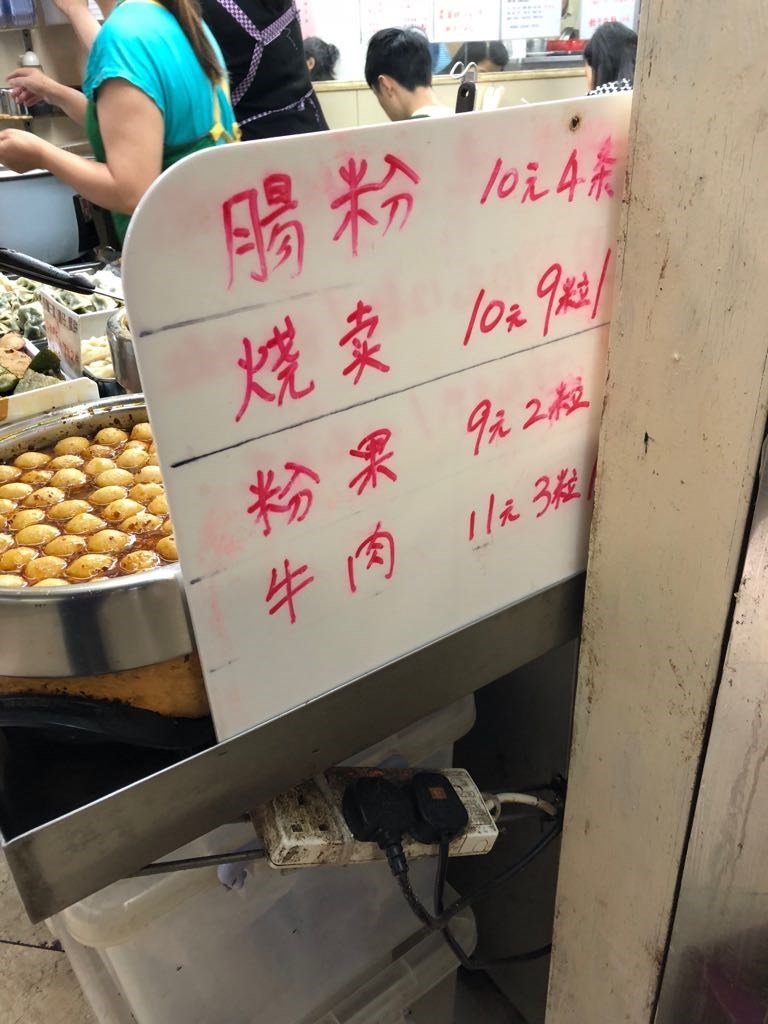 腸粉 10元4条
烧卖 10元9粒
粉果 9元2粒
牛肉 11元3粒